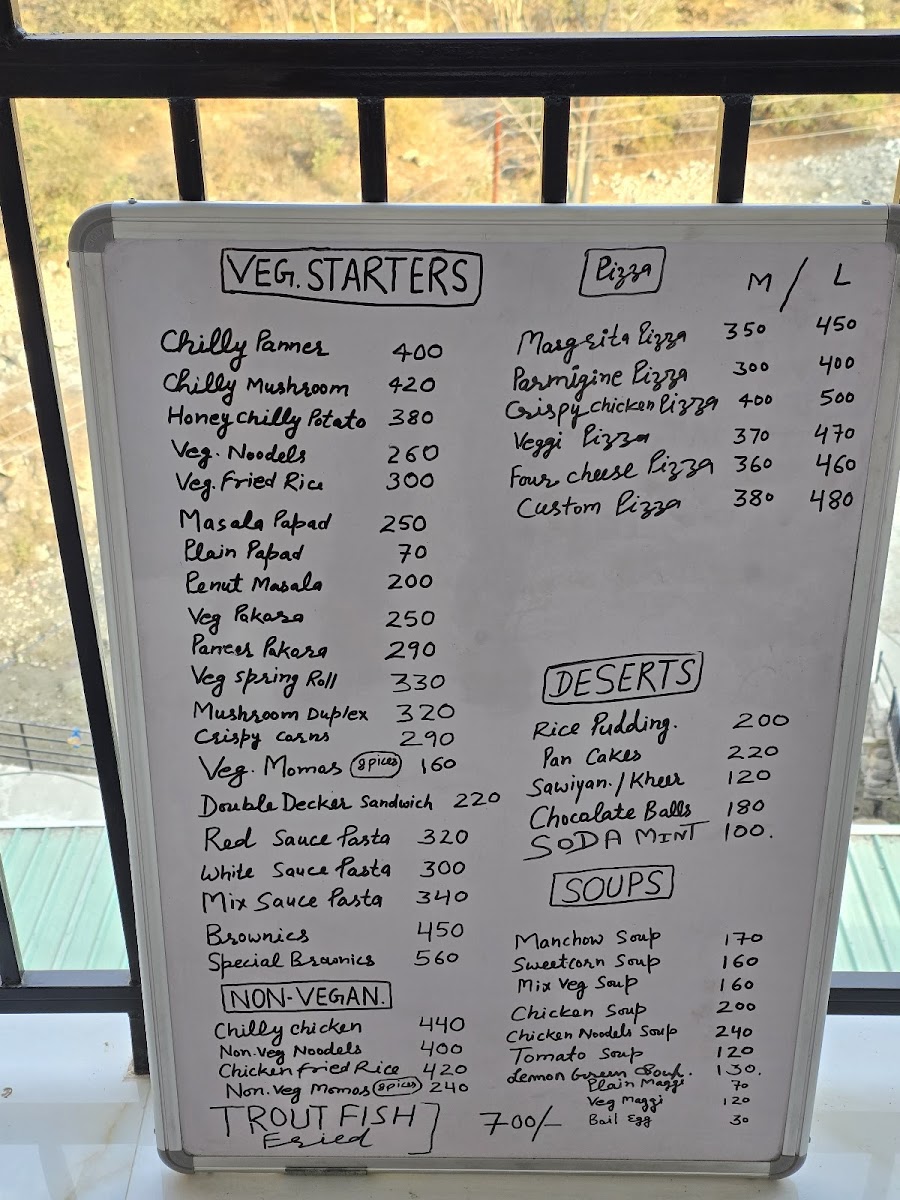 VEG. STARTERS
Chilly Panner 400
Chilly Mushroom 420
Honey Chilly Potato 380
Veg. Noodels 260
Veg. Fried Rice 300
Masala Papad 250
Plain Papad 70
Penut Masala 200
Veg Pakara 250
Paneer Pakara 290
Veg Spring Roll 330
Mushroom Duplex 320
Crispy Corns 290
Veg. Momos (8 pices) 160
Double Decker Sandwich 220
Red Sauce Pasta 320
White Sauce Pasta 300
Mix Sauce Pasta 340
Brownies 450
Special Brownies 560
NON-VEGAN.
Chilly chicken 440
Non.veg Noodels 400
Chicken fried Rice 420
Non.Veg Momos (8 pices) 240
TROUT FISH 700/-
Fried
Pizza M / L
Margrita Pizza 350 450
Parmigine Pizza 300 400
Crispy chicken Pizza 400 500
Veggi Pizza 370 470
Four cheese Pizza 360 460
Custom Pizza 380 480
DESERTS
Rice Pudding. 200
Pan Cakes 220
Sawiyan./Kheer 120
Chocalate Balls 180
SODA MINT 100.
SOUPS
Manchow Soup 170
Sweetcorn Soup 160
Mix Veg Soup 160
Chicken Soup 200
Chicken Noodels Soup 240
Tomato Soup 120
Lemon Green Soup. 130.
Plain Maggi 70
Veg Maggi 120
Bail Egg 30